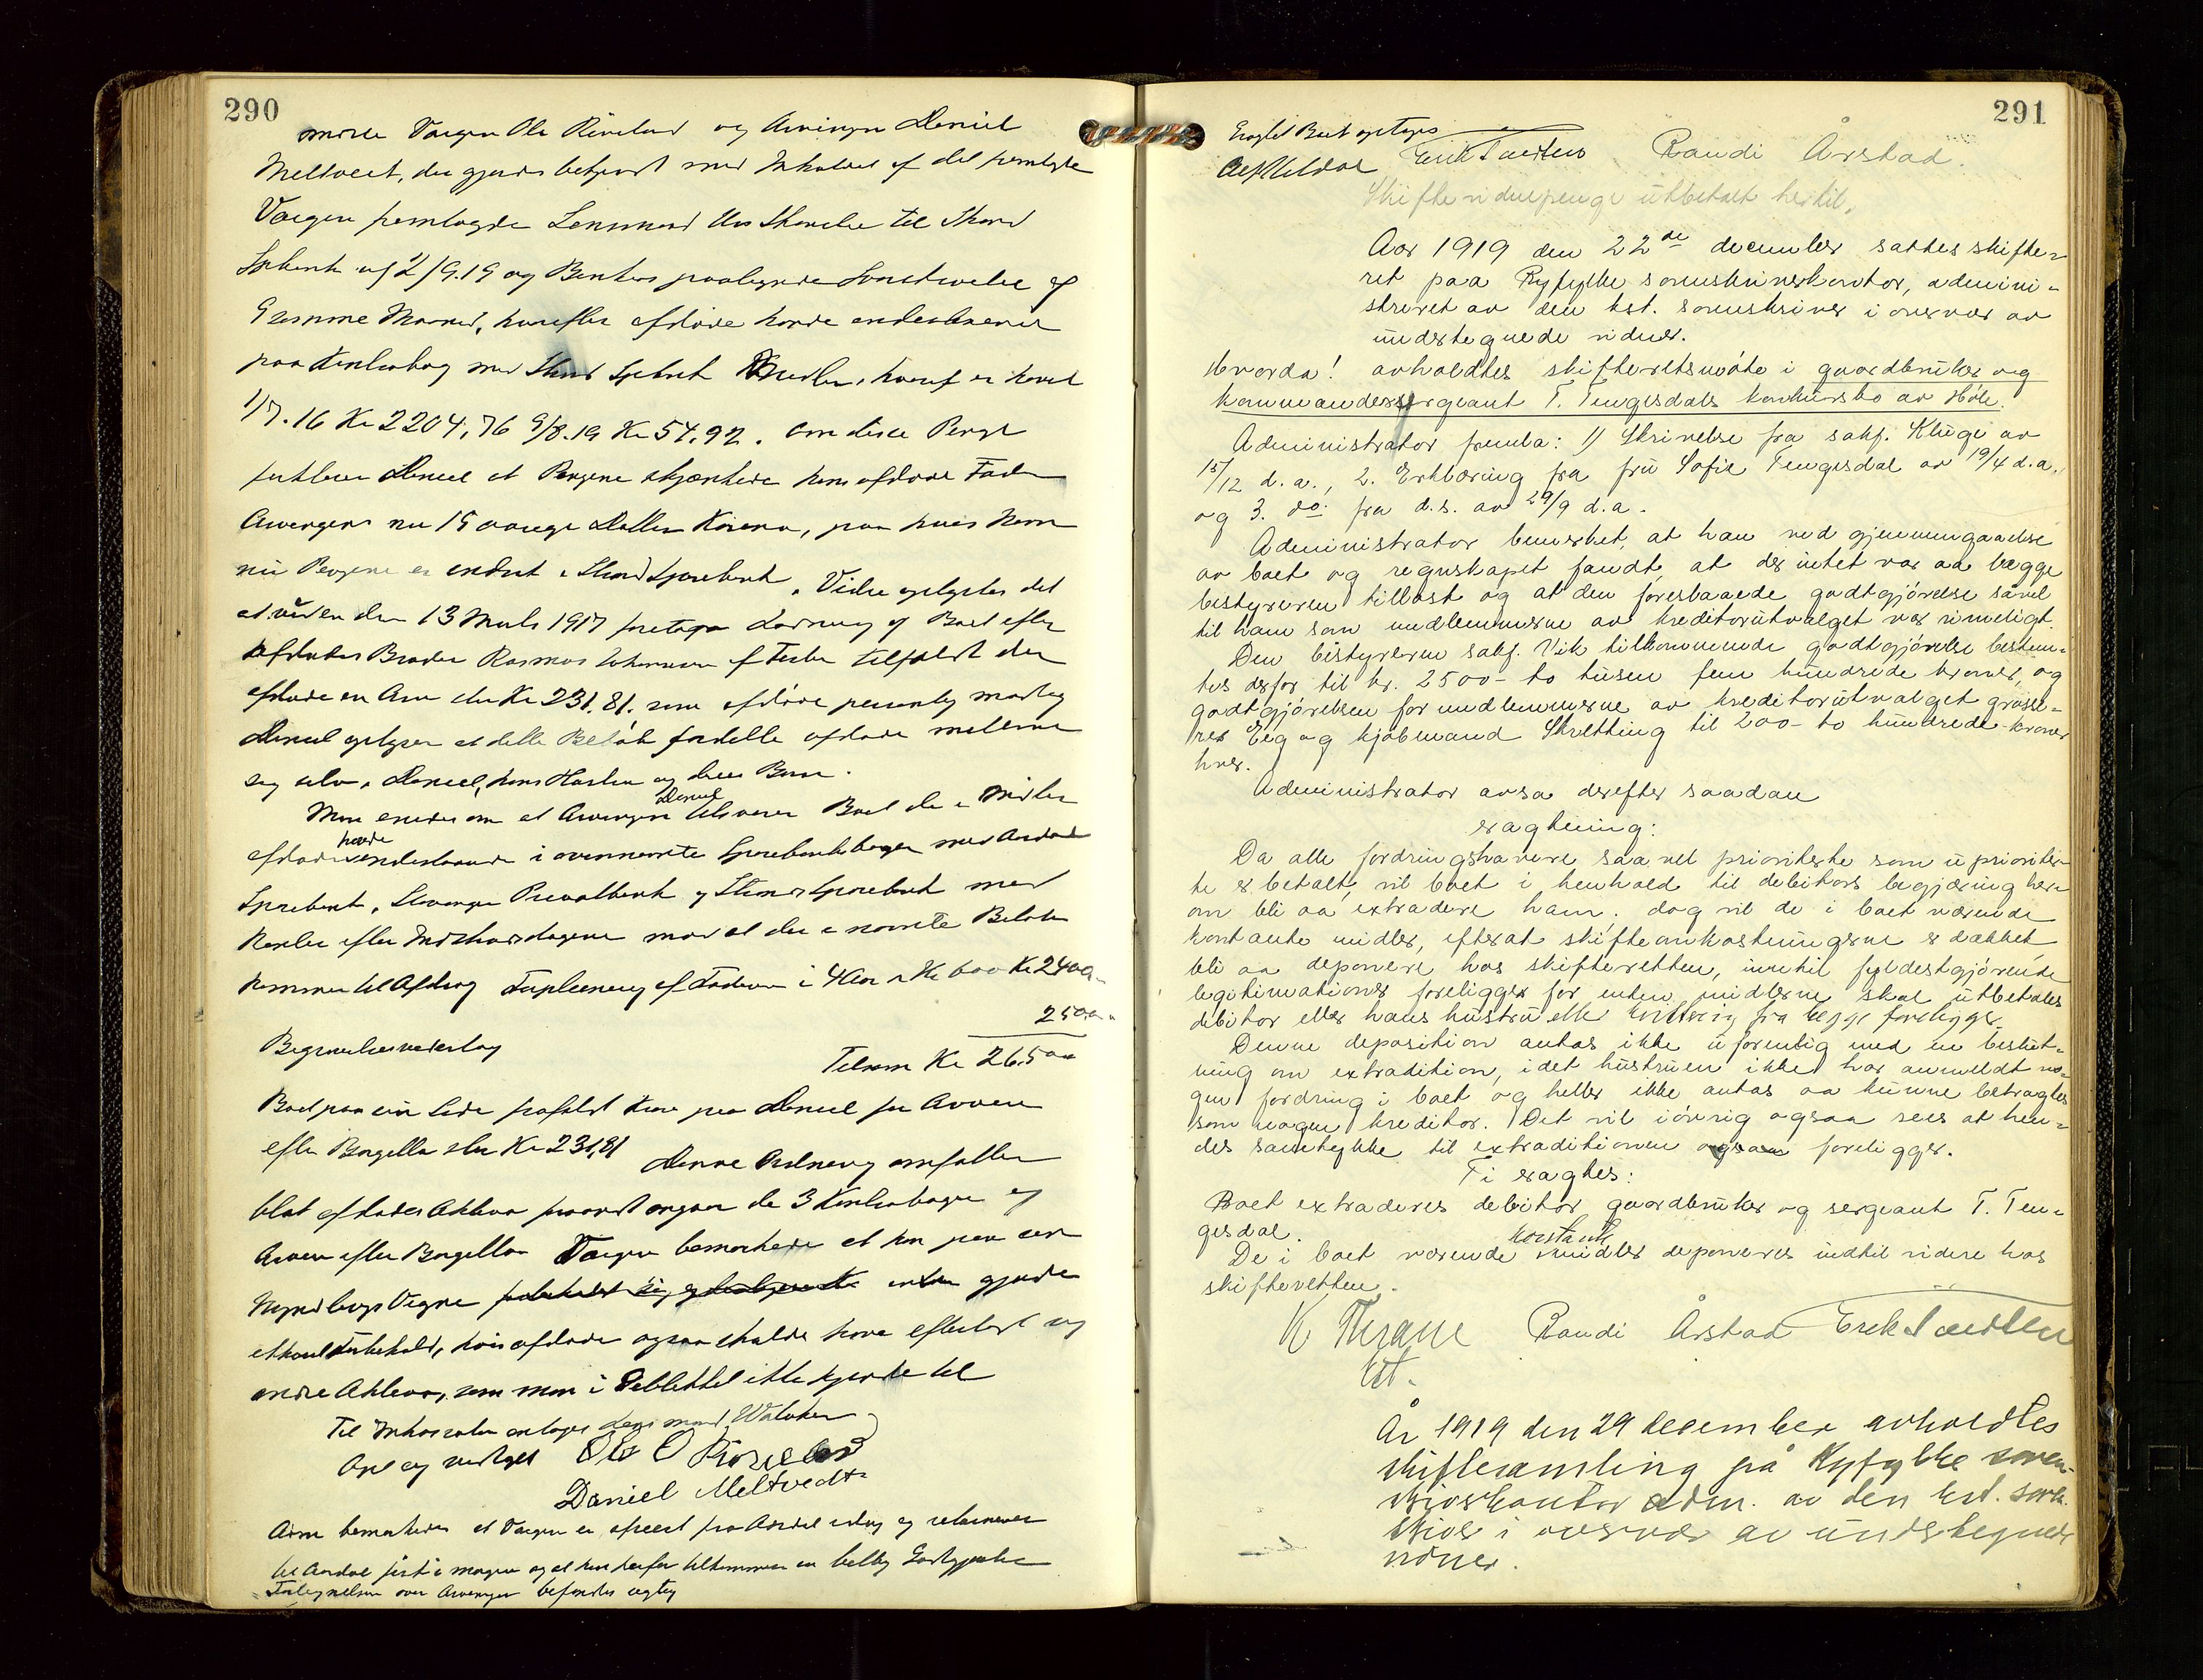 290
møtte Værgen Ole Riveland og Arvingen Daniel
Meltveit, der gjordes bekjendt med Inholdet af det fremlagte
Værgen fremlagde Lensmand til Strand
Spbank af 2/9.19 og Bankens paategnede Skrivelse af
Samme Maaned, hvorefter afdøde havde indestaaende
paa Kontrabog med Strand Spbank Midler, hvoraf er hævet
1/7.16 Kr 2204,76 9/8.19 Kr 54.92. Om disse Penge
forklarer Daniel at Pengene skjænkede hans afdøde Fader
Arvingens nu 15 aarige Datter, paa hvis Navn
nu Pengene er indsat i Strand Sparebank. Videre oplystes det
at under den 13 Marts 1917 foretoges Lodning af Boet efter
Afdødes Broder Rasmus tilfaldt der
afdøde en Arv stor Kr 231.81. som afdøde personlig modtog
Daniel oplyser at dette Beløb fordelte afdøde mellem
sig selv, Daniel, hans Hustru og deres Børn.
Man enedes om at Arvingen Daniel Boet de Midler
afdøde havde indestaaende i ovennævnte Sparebankbøger med Aardal
Sparebank, Stavanger Privatbank og Strand Sparebank med
Renter efter Indskudsdagene mod at der nævnte Beløb
kommer til Afdrag af Føderaad i 4 Aar a Kr 600 Kr 2400,-
250,-
Begravelsesvederlag
Tilsam Kr 2650,-
Boet paa sin Side frafaldt Krav paa Daniel for Arven
efter stor Kr 231,81 Denne Ordning omfatter
blot afdødes Aktiva forsaavidt angaar de 3 Kontrabøger og
Arven efter Værgen bemærkede at han paa sin
Myndlings Vegne gjorde
Forbehold, hvis afdøde ogsaa skulde have efterladt sig
andre Aktiva, som man i Øieblikket ikke kjendte til
Til antages Lensmand
Opl og vedtaget Ole O Riveland
Daniel Meltvedt
Adm bemærkede at Værgen er afreist fra Aardal idag og returnerer
til Aardal først i morgen og at han derfor tilkommer en billig Godtgjørelse
over Arvingen befandtes rigtig
291
Eragtet Boet optages
Erik Randi Årstad.
Skiftevidnepenge utbetalt hertil.
Aar 1919 den 22de december sattes skifte-
ret paa Ryfylke sorenskriverkontor, admini-
streret av den kst. sorenskriver i overvær av
undertegnede vidner.
Hvorda! avholdtes skifteretsmøte i gaardbruker og
kommandersergeant T. Tengesdals konkursbo av Høle.
Administrator fremla: 1) Skrivelse fra sakf. Kluge av
15/12 d.a., 2. Erklæring fra fru Sofie Tengesdal av 19/4 d.a.,
og 3. do. fra d.s. av 29/9 d.a.
Administrator bemerket, at han ved gjennemgaaelse
av boet og regnskapet fandt at der intet var aa lægge
bestyreren tillast og at den foreslaaede godtgjørelse såvel
til ham som medlemmerne av kreditorutvalget var rimeligt.
Den bestyreren sakf. Vik tilkommende godtgjørelse bestem-
tes derfor til kr. 2500- to tusen fem hundrede kroner, og
godtgjørelsen for medlemmerne av kreditorutvalget grosse-
rer Eeg og kjøbmand Skretting til 200- to hundrede kroner
hver.
Administrator avsa derefter saadan
eragtning:
Da alle fordringshavere saavel prioriterte som uprioriter-
te er betalt, vil boet i henhold til debitors begjæring her-
om bli aa extradere ham. dog vil de i boet værende
kontante midler, efterat skifteomkostningerne er dækket
bli aa deponere hos skifteretten, inntil fyldestgjørende
legitimationer foreligger for enten midlerne skal utbetales
debitor eller hans hustru eller fra begge foreligger.
Denne deposition antas ikke uforenlig med en beslut-
ning om extradition, idet hustruen ikke har anmeldt no-
gen fordring i boet og heller ikke antas aa kunne betragtes
som nogen kreditor. Det vil iøvrig ogsaa sees at hen-
des samtykke til extraditionen foreligger.
Ti eragtes:
Boet extraderes debitor, gaardbruker og sergeant T. Ten-
gesdal.
De i boet værende kontante midler deponeres indtil videre hos
skifteretten.
K Thrane Randi Årstad Erik
kst.
År 1919 den 29 december avholdtes
skiftesamling på Ryfylke soren-
skriverkontor adm. av den kst. soren-
skriver i overvær av undertegnede
vidner.